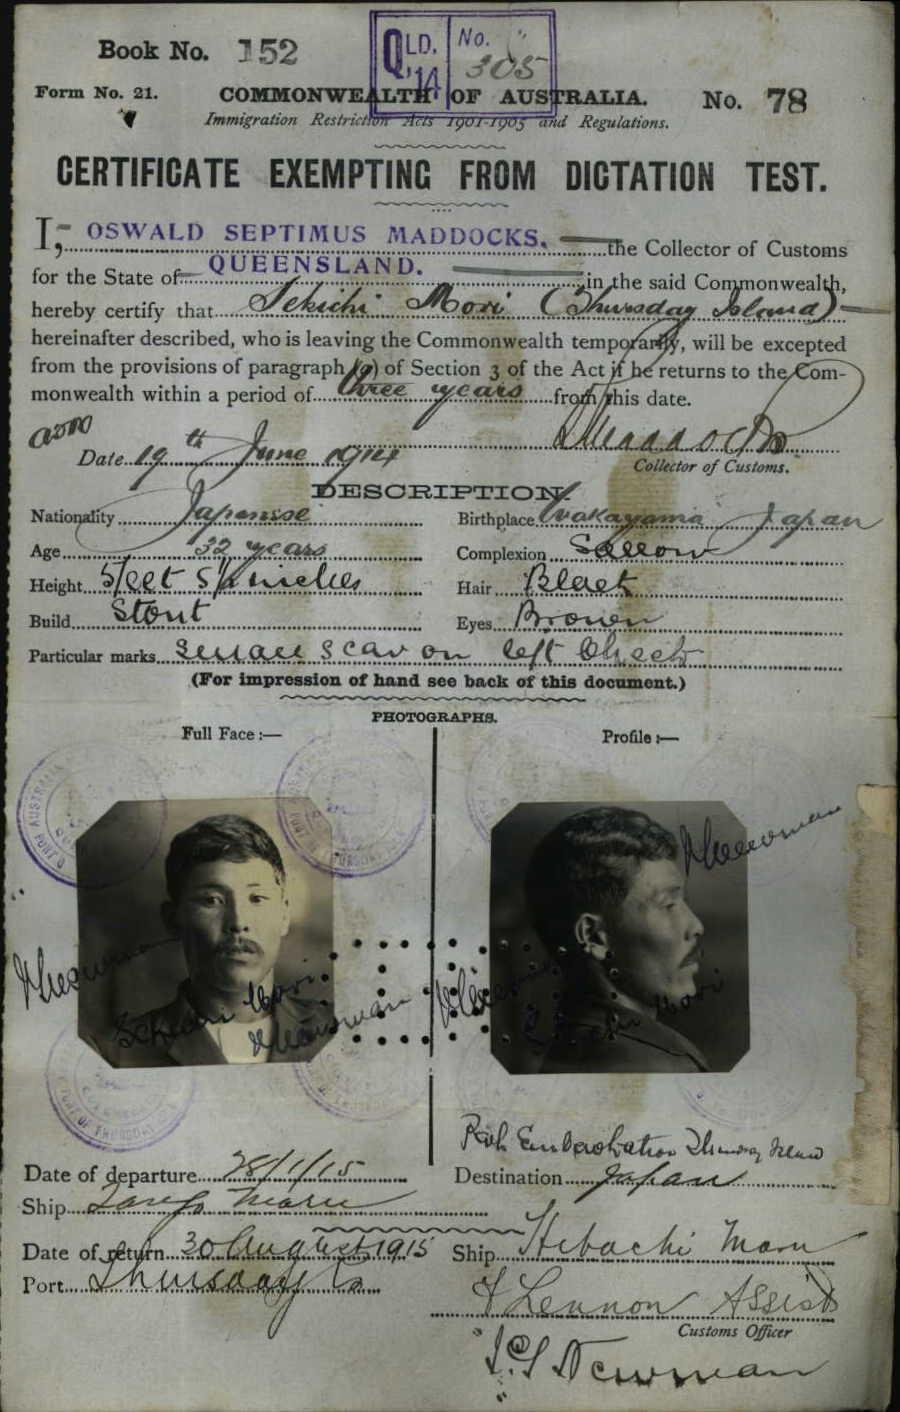 Book No. 152
QLD. 14 No. 305
Form No. 21.
COMMONWEALTH OF AUSTRALIA.
No. 78
Immigration Restriction Acts 1901-1905 and Regulations.
CERTIFICATE EXEMPTING FROM DICTATION TEST.
I, OSWALD SEPTIMUS MADDOCKS, the Collector of Customs
for the State of QUEENSLAND. in the said Commonwealth,
hereby certify that Mori (Thursday Island)
hereinafter described, who is leaving the Commonwealth temporarily, will be excepted
from the provisions of paragraph (a) of Section 3 of the Act if he returns to the Com-
monwealth within a period of three years from this date.
Date 19th June 1914
Maddocks
Collector of Customs.
DESCRIPTION.
Nationality Japanese
Birthplace Wakayama Japan
Age 32 years
Complexion Sallow
Height 5 feet inches
Hair Black
Build Stout
Eyes Brown
Particular marks Small scar on left cheek
(For impression of hand see back of this document.)
PHOTOGRAPHS.
Full Face:—
Profile:—
Newman
Mori
Newman
Newman
Mori
Embarkation Thursday Island
Date of departure 28/1/15
Destination Japan
Ship Tango Maru
Date of return 30 August 1915
Ship Hitachi Maru
Port Thursday Is
Lennon Assist
Customs Officer
Newman